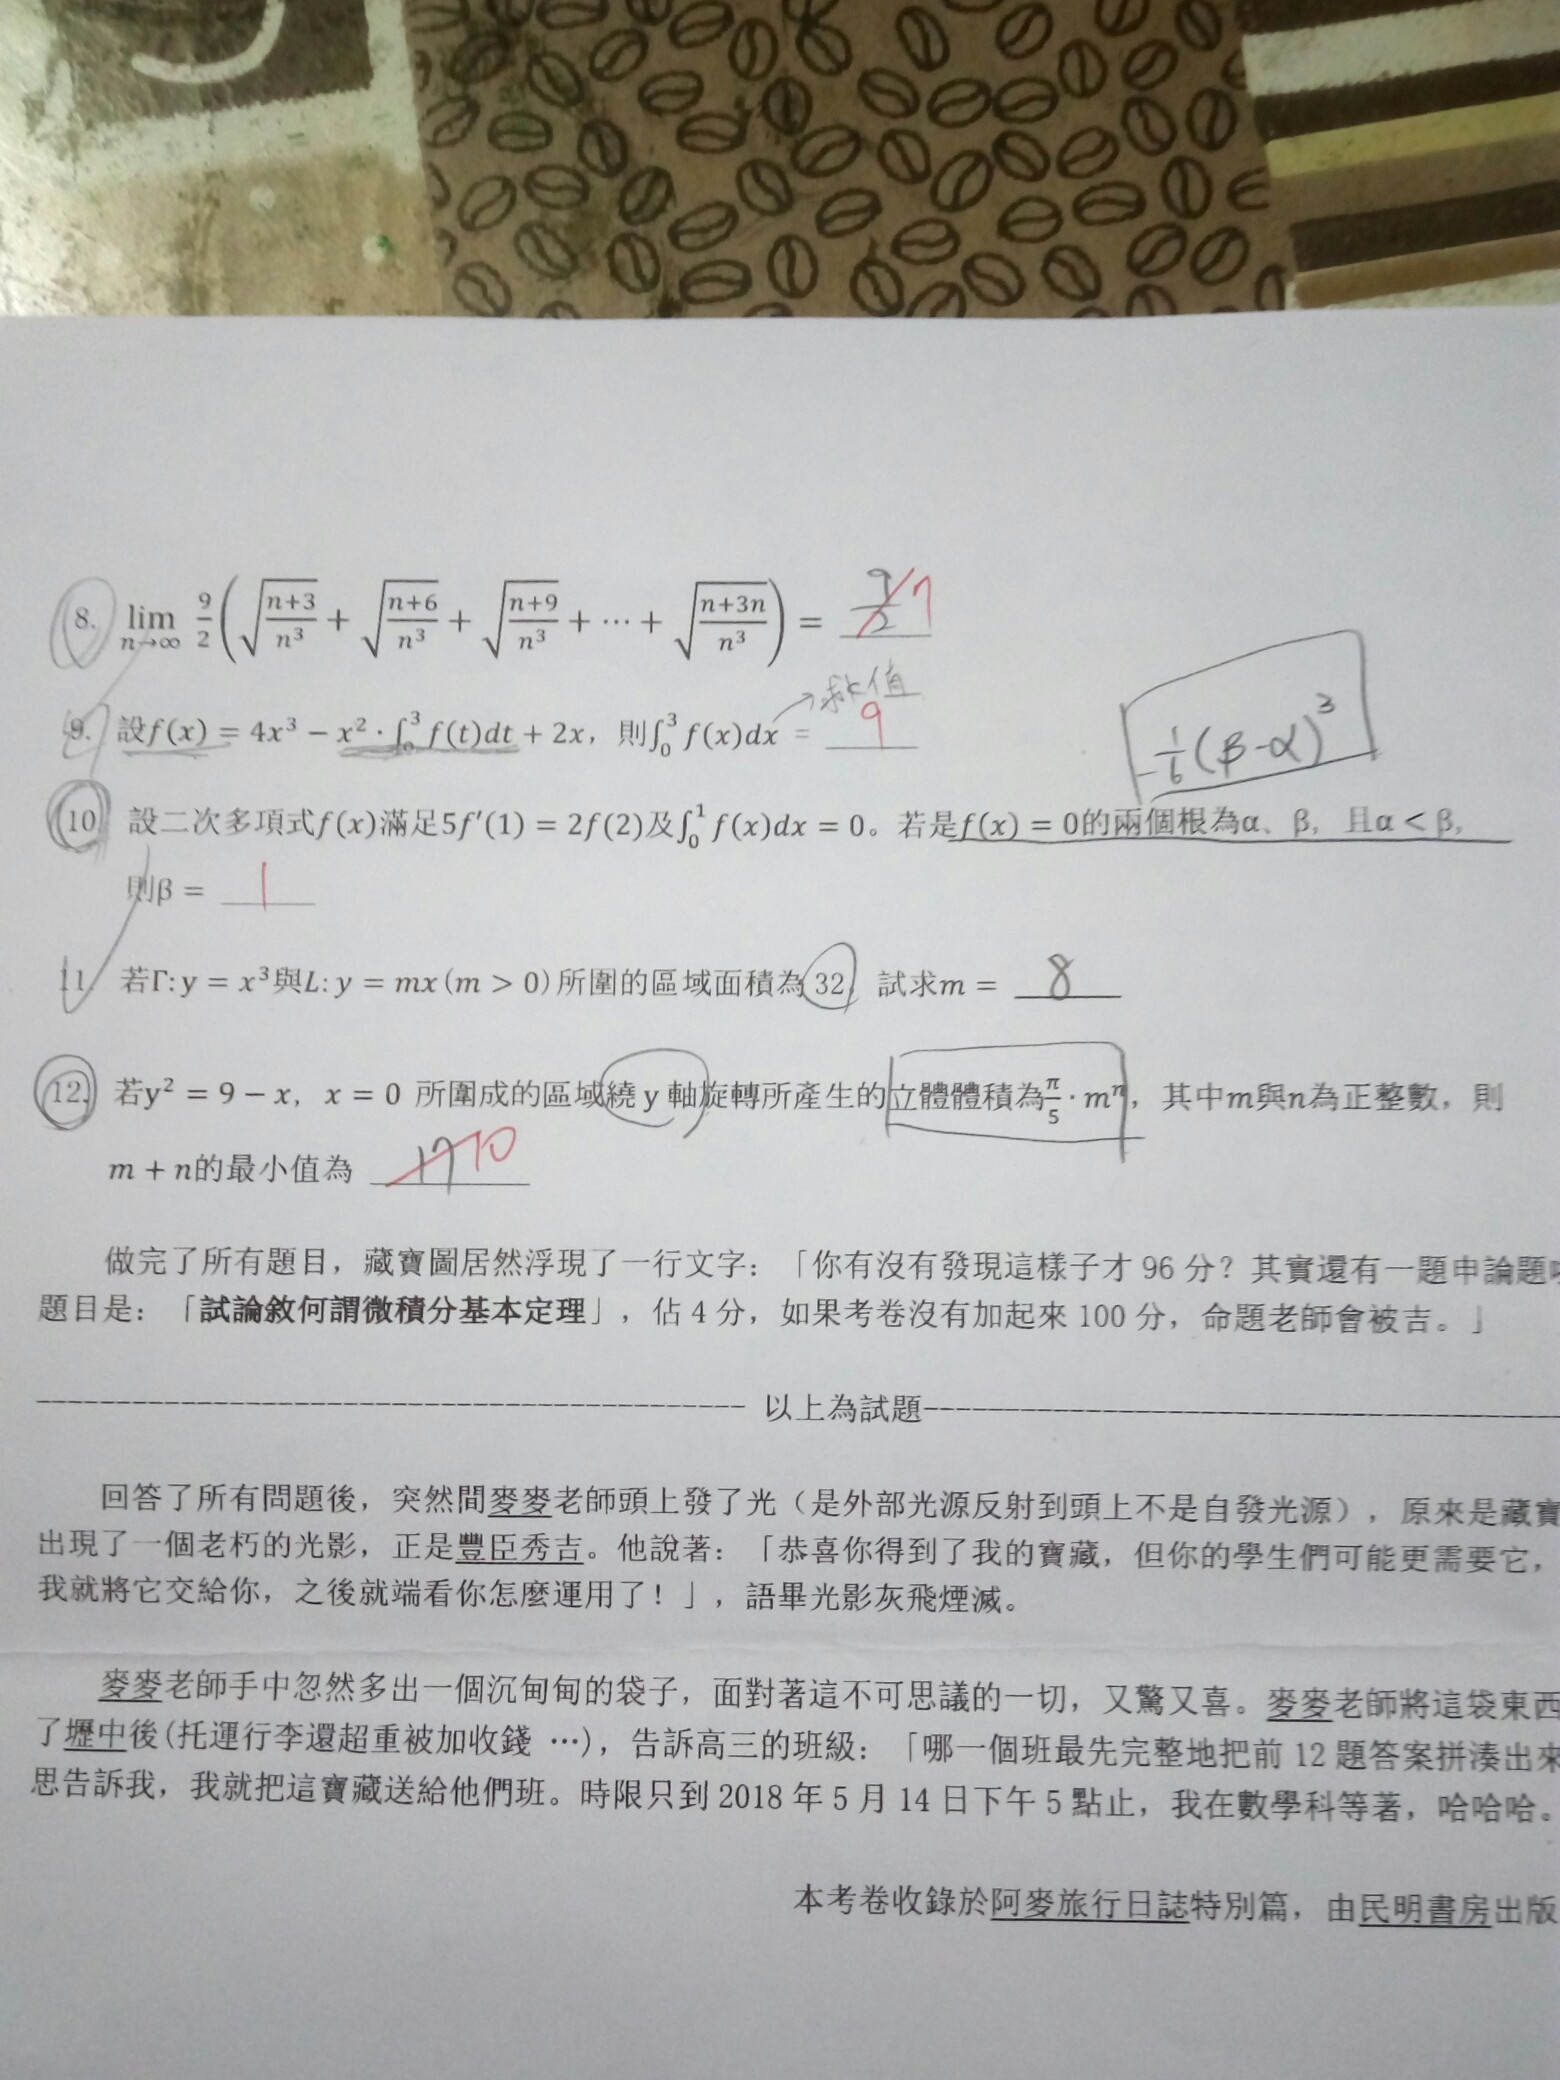 8. lim n→∞ 9/2 ( √((n+3)/n³) + √((n+6)/n³) + √((n+9)/n³) + ⋯ + √((n+3n)/n³) ) = 9/2 7
→求值
9. 設f(x) = 4x³ − x² · ∫₀³ f(t)dt + 2x，則∫₀³ f(x)dx = 9
-1/6(β-α)³
10. 設二次多項式f(x)滿足5f′(1) = 2f(2)及∫₀¹ f(x)dx = 0。若是f(x) = 0的兩個根為α、β，且α < β，
則β = 1
11. 若Γ: y = x³與L: y = mx (m > 0)所圍的區域面積為 32，試求m = 8
12. 若y² = 9 − x，x = 0 所圍成的區域繞 y 軸旋轉所產生的立體體積為π/5 · mⁿ，其中m與n為正整數，則
m + n的最小值為 17 10
做完了所有題目，藏寶圖居然浮現了一行文字：「你有沒有發現這樣子才 96 分？其實還有一題申論題
題目是：「試論敘何謂微積分基本定理」，佔 4 分，如果考卷沒有加起來 100 分，命題老師會被吉。」
---------------------------------------------- 以上為試題----------------------------------------------
回答了所有問題後，突然間麥麥老師頭上發了光（是外部光源反射到頭上不是自發光源），原來是藏寶
出現了一個老朽的光影，正是豐臣秀吉。他說著：「恭喜你得到了我的寶藏，但你的學生們可能更需要它，
我就將它交給你，之後就端看你怎麼運用了！」，語畢光影灰飛煙滅。
麥麥老師手中忽然多出一個沉甸甸的袋子，面對著這不可思議的一切，又驚又喜。麥麥老師將這袋東西
了壢中後(托運行李還超重被加收錢 …)，告訴高三的班級：「哪一個班最先完整地把前 12 題答案拼湊出來
思告訴我，我就把這寶藏送給他們班。時限只到 2018 年 5 月 14 日下午 5 點止，我在數學科等著，哈哈哈。
本考卷收錄於阿麥旅行日誌特別篇，由民明書房出版